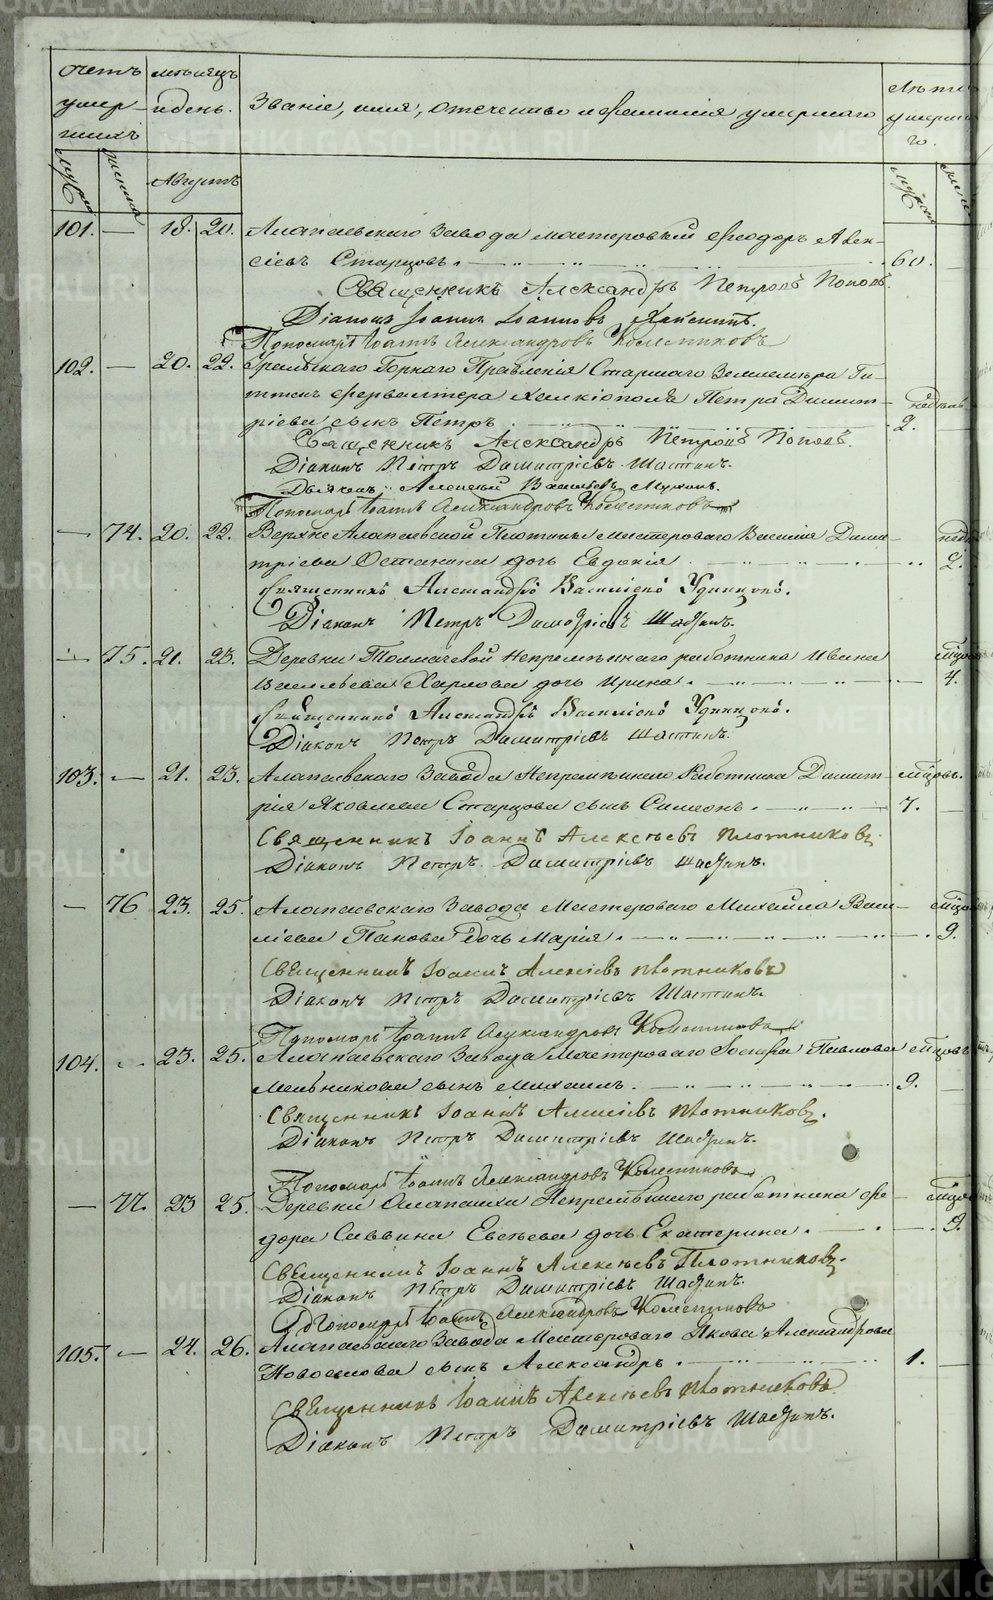 METRIKI.GASO-URAL.RU
Счетъ умер-шихъ
мѣсяцъ и день.
Званіе, имя, отечество и фамилія умершаго
Лѣта умершаго.
мужеска
женска
Августъ
мужеска
женска
101. — 18. 20. Алапаевскаго Завода мастеровый Ѳеодоръ Алек-
сіевъ Старцовъ. 60.
Священникъ Александръ Петровъ Поповъ.
Діаконъ Іоаннъ Іоанновъ
Пономарь Іоаннъ Александровъ Колотиловъ
102. — 20. 22. Уральскаго Горнаго Правленія Старшаго Землемѣра Ги-
ттенфервалтера Петра Димит- недѣль
ріева сынъ Петръ 2.
Священникъ Александръ Петровъ Поповъ.
Діаконъ Петръ Димитріевъ Шастинъ.
Дьячекъ Алексѣй Васильевъ
Пономарь Іоаннъ Александровъ
— 74. 20. 22. Верхне Алапаевской Плотинки мастероваго Василія Дими-
тріева Останина дочь Евдокія 2.
Священникъ Александръ Василіевъ Удинцовъ.
Діаконъ Петръ Димитріевъ Шастинъ.
— 75. 21. 23. Деревни Толмачевой непремѣннаго работника Ивана
Васильева Харлова дочь Ирина. 4.
Священникъ Александръ Василіевъ Удинцовъ.
Діаконъ Петръ Димитріевъ Шастинъ.
103. — 21. 23. Алапаевскаго Завода Непремѣннаго Работника Димит- мѣсяцовъ.
рія Яковлева Старцова сынъ Симеонъ. 7.
Священникъ Іоаннъ Алексѣевъ Плотниковъ.
Діаконъ Петръ Димитріевъ Шастинъ.
— 76 23. 25. Алапаевскаго Завода Мастероваго Михайла Васи-
лієва Панова дочь Марія. 9.
Священникъ Іоаннъ Алексіевъ Плотниковъ
Діаконъ Петръ Димитріевъ Шастинъ.
Пономарь Іоаннъ Александровъ
104. — 23. 25. Алапаевскаго Завода Мастероваго Іосифа Павлова мѣсяцовъ
Мельникова сынъ Михаилъ. 9.
Священникъ Іоаннъ Алексіевъ Плотниковъ.
Діаконъ Петръ Димитріевъ Шастинъ.
Пономарь Іоаннъ Александровъ
— 77. 23 25. Деревни Алапаихи Непремѣннаго работника Ѳе-
дора Саввина Евсѣева дочь Екатерина. 9.
Священникъ Іоаннъ Алексѣевъ Плотниковъ.
Діаконъ Петръ Димитріевъ Шастинъ.
Пономарь Іоаннъ Александровъ
105. — 24. 26. Алапаевскаго Завода Мастероваго Якова Александрова
Новоселова сынъ Александръ. 1.
Священникъ Іоаннъ Алексѣевъ Плотниковъ
Діаконъ Петръ Димитріевъ Шастинъ.